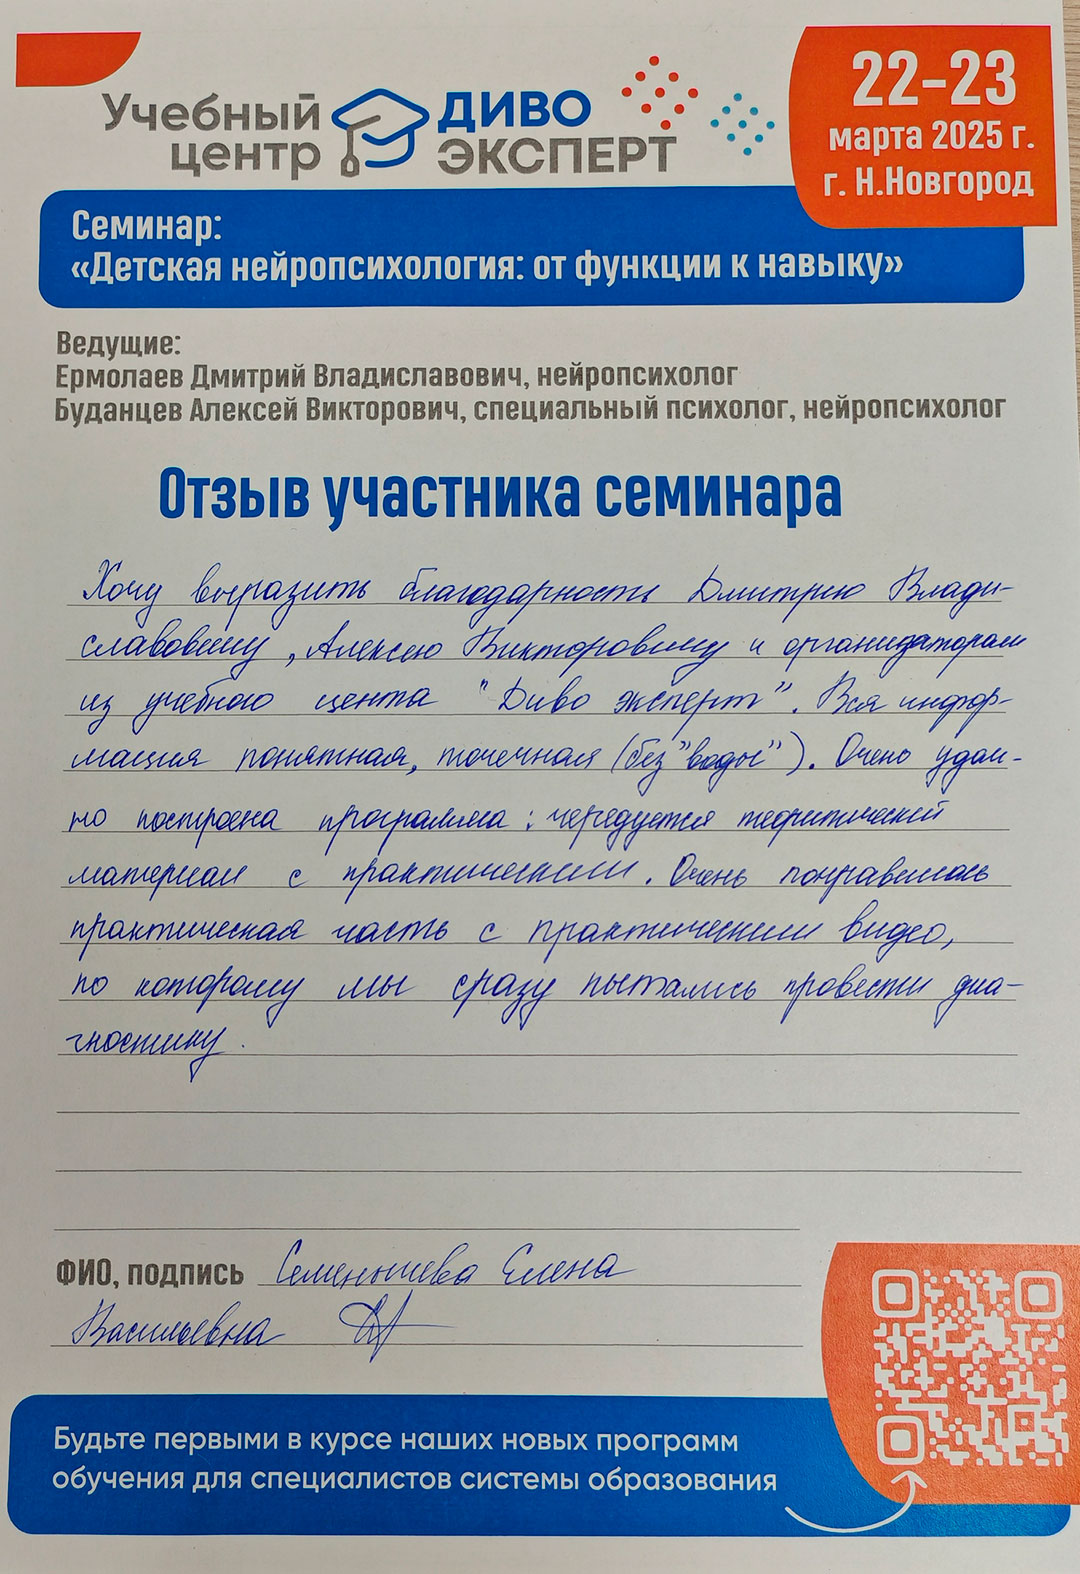 Учебный центр
ДИВО ЭКСПЕРТ
22-23
марта 2025 г.
г. Н.Новгород
Семинар:
«Детская нейропсихология: от функции к навыку»
Ведущие:
Ермолаев Дмитрий Владиславович, нейропсихолог
Буданцев Алексей Викторович, специальный психолог, нейропсихолог
Отзыв участника семинара
Хочу выразить благодарность Дмитрию Влади-
славовичу, Алексею Викторовичу и организаторам
из учебного цента "Диво эксперт". Вся инфор-
мация понятная, точечная (без "воды"). Очень удач-
но построена программа: чередуется теоритический
материал с практическим. Очень понравилась
практическая часть с практическим видео,
по которому мы сразу пытались провести диа-
гностику.
ФИО, подпись Семенычева Елена
Васильевна
Будьте первыми в курсе наших новых программ
обучения для специалистов системы образования